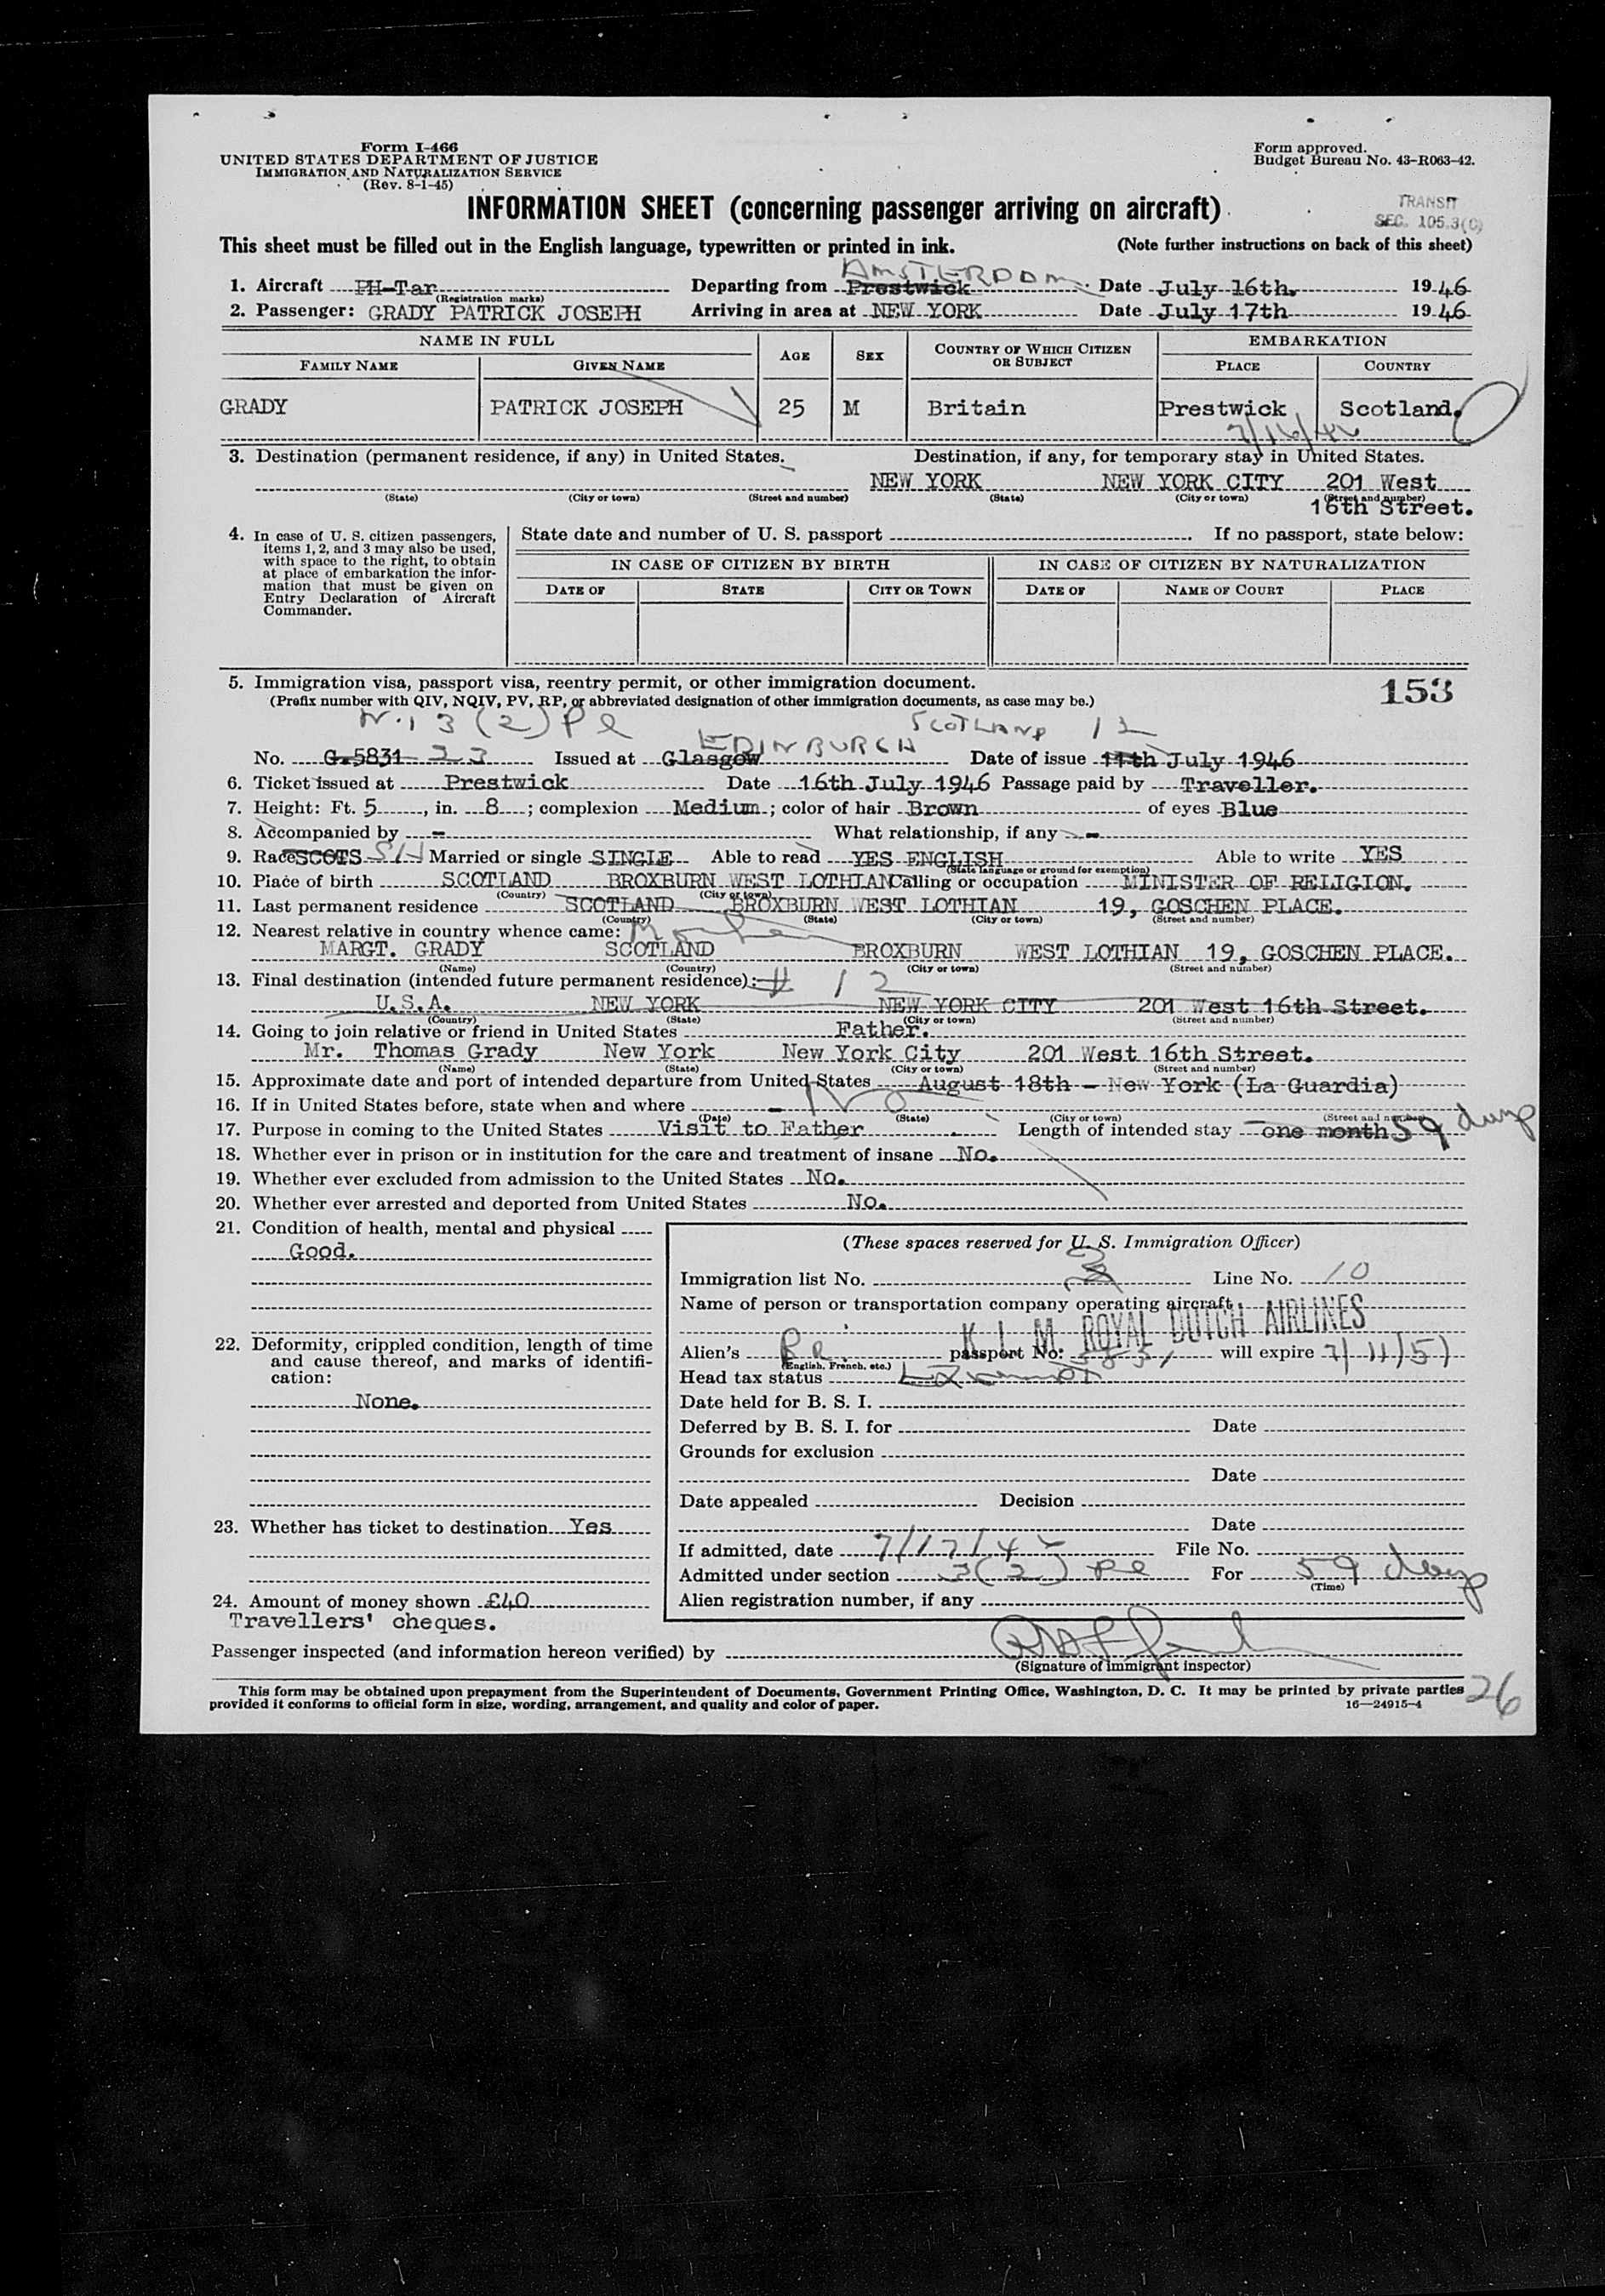 Form I-466
UNITED STATES DEPARTMENT OF JUSTICE
IMMIGRATION AND NATURALIZATION SERVICE
(Rev. 8-1-45)
Form approved.
Budget Bureau No. 43-R063-42.
INFORMATION SHEET (concerning passenger arriving on aircraft)
TRANSIT
SEC. 105.3(C)
This sheet must be filled out in the English language, typewritten or printed in ink. (Note further instructions on back of this sheet)
AMSTERDAM
1. Aircraft PH-Tar Departing from Prestwick Date July 16th. 1946
(Registration marks)
2. Passenger: GRADY PATRICK JOSEPH Arriving in area at NEW YORK Date July 17th 1946
NAME IN FULL AGE SEX COUNTRY OF WHICH CITIZEN OR SUBJECT EMBARKATION
FAMILY NAME GIVEN NAME PLACE COUNTRY
GRADY PATRICK JOSEPH 25 M Britain Prestwick Scotland.
7/16/46
3. Destination (permanent residence, if any) in United States. Destination, if any, for temporary stay in United States.
NEW YORK NEW YORK CITY 201 West
(State) (City or town) (Street and number) (State) (City or town) (Street and number)
16th Street.
4. In case of U. S. citizen passengers, items 1, 2, and 3 may also be used, with space to the right, to obtain at place of embarkation the information that must be given on Entry Declaration of Aircraft Commander.
State date and number of U. S. passport . If no passport, state below:
IN CASE OF CITIZEN BY BIRTH IN CASE OF CITIZEN BY NATURALIZATION
DATE OF STATE CITY OR TOWN DATE OF NAME OF COURT PLACE
5. Immigration visa, passport visa, reentry permit, or other immigration document.
153
(Prefix number with QIV, NQIV, PV, RP, or abbreviated designation of other immigration documents, as case may be.)
3(2) SCOTLAND 12
EDINBURGH
No. G.5831 23 Issued at Glasgow Date of issue 11th July 1946
6. Ticket issued at Prestwick Date 16th July 1946 Passage paid by Traveller.
7. Height: Ft. 5, in. 8; complexion Medium; color of hair Brown of eyes Blue
8. Accompanied by - What relationship, if any -
9. Race SCOTS Married or single SINGLE Able to read YES ENGLISH Able to write YES
(State language or ground for exemption)
10. Place of birth SCOTLAND BROXBURN WEST LOTHIAN Calling or occupation MINISTER OF RELIGION.
(Country) (City or town)
11. Last permanent residence SCOTLAND BROXBURN WEST LOTHIAN 19, GOSCHEN PLACE.
(Country) (State) (City or town) (Street and number)
12. Nearest relative in country whence came: Mother
MARGT. GRADY SCOTLAND BROXBURN WEST LOTHIAN 19, GOSCHEN PLACE.
(Name) (Country) (City or town) (Street and number)
13. Final destination (intended future permanent residence): # 12
U.S.A. NEW YORK NEW YORK CITY 201 West 16th Street.
(Country) (State) (City or town) (Street and number)
14. Going to join relative or friend in United States Father.
Mr. Thomas Grady New York New York City 201 West 16th Street.
(Name) (State) (City or town) (Street and number)
15. Approximate date and port of intended departure from United States August 18th - New York (La Guardia)
16. If in United States before, state when and where - No
(Date) (State) (City or town) (Street and number)
17. Purpose in coming to the United States Visit to Father Length of intended stay one month 59 days
18. Whether ever in prison or in institution for the care and treatment of insane No.
19. Whether ever excluded from admission to the United States No.
20. Whether ever arrested and deported from United States No.
21. Condition of health, mental and physical
Good.
22. Deformity, crippled condition, length of time and cause thereof, and marks of identification:
None.
23. Whether has ticket to destination Yes
24. Amount of money shown £40
Travellers' cheques.
(These spaces reserved for U. S. Immigration Officer)
Immigration list No. 3 Line No. 10
Name of person or transportation company operating aircraft
K L M ROYAL DUTCH AIRLINES
Alien's passport No. 5831 will expire 7/11/51
(English, French, etc.)
Head tax status Exempt
Date held for B. S. I.
Deferred by B. S. I. for Date
Grounds for exclusion
Date
Date appealed Decision
Date
If admitted, date 7/17/46 File No.
Admitted under section 3(2) For 59 days
(Time)
Alien registration number, if any
Passenger inspected (and information hereon verified) by
(Signature of immigrant inspector)
This form may be obtained upon prepayment from the Superintendent of Documents, Government Printing Office, Washington, D. C. It may be printed by private parties
provided it conforms to official form in size, wording, arrangement, and quality and color of paper. 16—24915-4
26